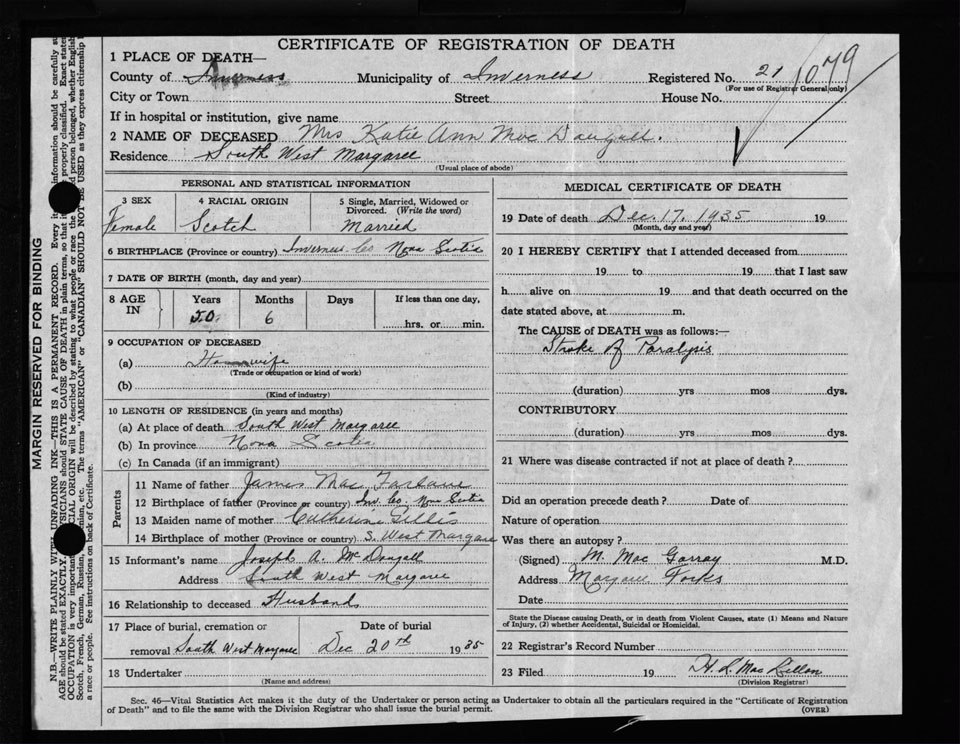 CERTIFICATE OF REGISTRATION OF DEATH
1 PLACE OF DEATH—
County of Inverness Municipality of Inverness Registered No. 21 1079
(For use of Registrar General only)
City or Town Street House No.
If in hospital or institution, give name
2 NAME OF DECEASED Mrs Katie Ann Mac Dougall.
Residence South West Margaree
(Usual place of abode)
PERSONAL AND STATISTICAL INFORMATION
3 SEX 4 RACIAL ORIGIN 5 Single, Married, Widowed or Divorced. (Write the word)
Female Scotch Married
6 BIRTHPLACE (Province or country) Inverness Co Nova Scotia
7 DATE OF BIRTH (month, day and year)
8 AGE IN Years Months Days If less than one day,
50 6 hrs. or min.
9 OCCUPATION OF DECEASED
(a) Housewife
(Trade or occupation or kind of work)
(b)
(Kind of industry)
10 LENGTH OF RESIDENCE (in years and months)
(a) At place of death South West Margaree
(b) In province Nova Scotia
(c) In Canada (if an immigrant)
Parents
11 Name of father James Mac Farlane
12 Birthplace of father (Province or country) Inv. Co. Nova Scotia
13 Maiden name of mother Catherine Gillis
14 Birthplace of mother (Province or country) S. West Margaree
15 Informant's name Joseph A. McDougall
Address South West Margaree
16 Relationship to deceased Husband
17 Place of burial, cremation or Date of burial
removal South West Margaree Dec 20th 1935
18 Undertaker
(Name and address)
MEDICAL CERTIFICATE OF DEATH
19 Date of death Dec. 17, 1935 19
(Month, day and year)
20 I HEREBY CERTIFY that I attended deceased from
19 to 19 that I last saw
h alive on 19 and that death occurred on the
date stated above, at m.
The CAUSE of DEATH was as follows:—
Stroke of Paralysis
(duration) yrs mos dys.
CONTRIBUTORY
(duration) yrs mos dys.
21 Where was disease contracted if not at place of death?
Did an operation precede death? Date of
Nature of operation
Was there an autopsy?
(Signed) M. Mac Garray M.D.
Address Margaree Forks
Date
State the Disease causing Death, or in death from Violent Causes, state (1) Means and Nature
of Injury, (2) whether Accidental, Suicidal or Homicidal.
22 Registrar's Record Number
23 Filed 19 Mac Lellan
(Division Registrar)
Sec. 46—Vital Statistics Act makes it the duty of the Undertaker or person acting as Undertaker to obtain all the particulars required in the "Certificate of Registration
of Death" and to file the same with the Division Registrar who shall issue the burial permit. (OVER)
MARGIN RESERVED FOR BINDING
N.B.—WRITE PLAINLY WITH UNFADING INK—THIS IS A PERMANENT RECORD. Every information should be carefully
AGE should be stated EXACTLY. should STATE CAUSE OF DEATH in plain terms, so that properly classified. Exact
OCCUPATION is very important. will be described by stating to what people or race the person belonged, whether English
Scotch, French, German, Russian, etc. The terms "AMERICAN" or "CANADIAN" SHOULD NOT BE USED as they express citizenship
a race or people. See instructions on back of Certificate.